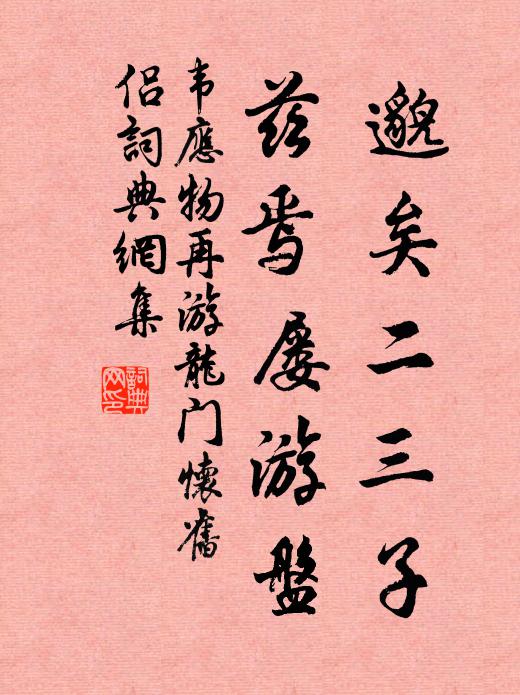 邈矣二三子
茲焉屡游盤
韦應物再游龍门懷舊
侣詞典網集
詞典网印